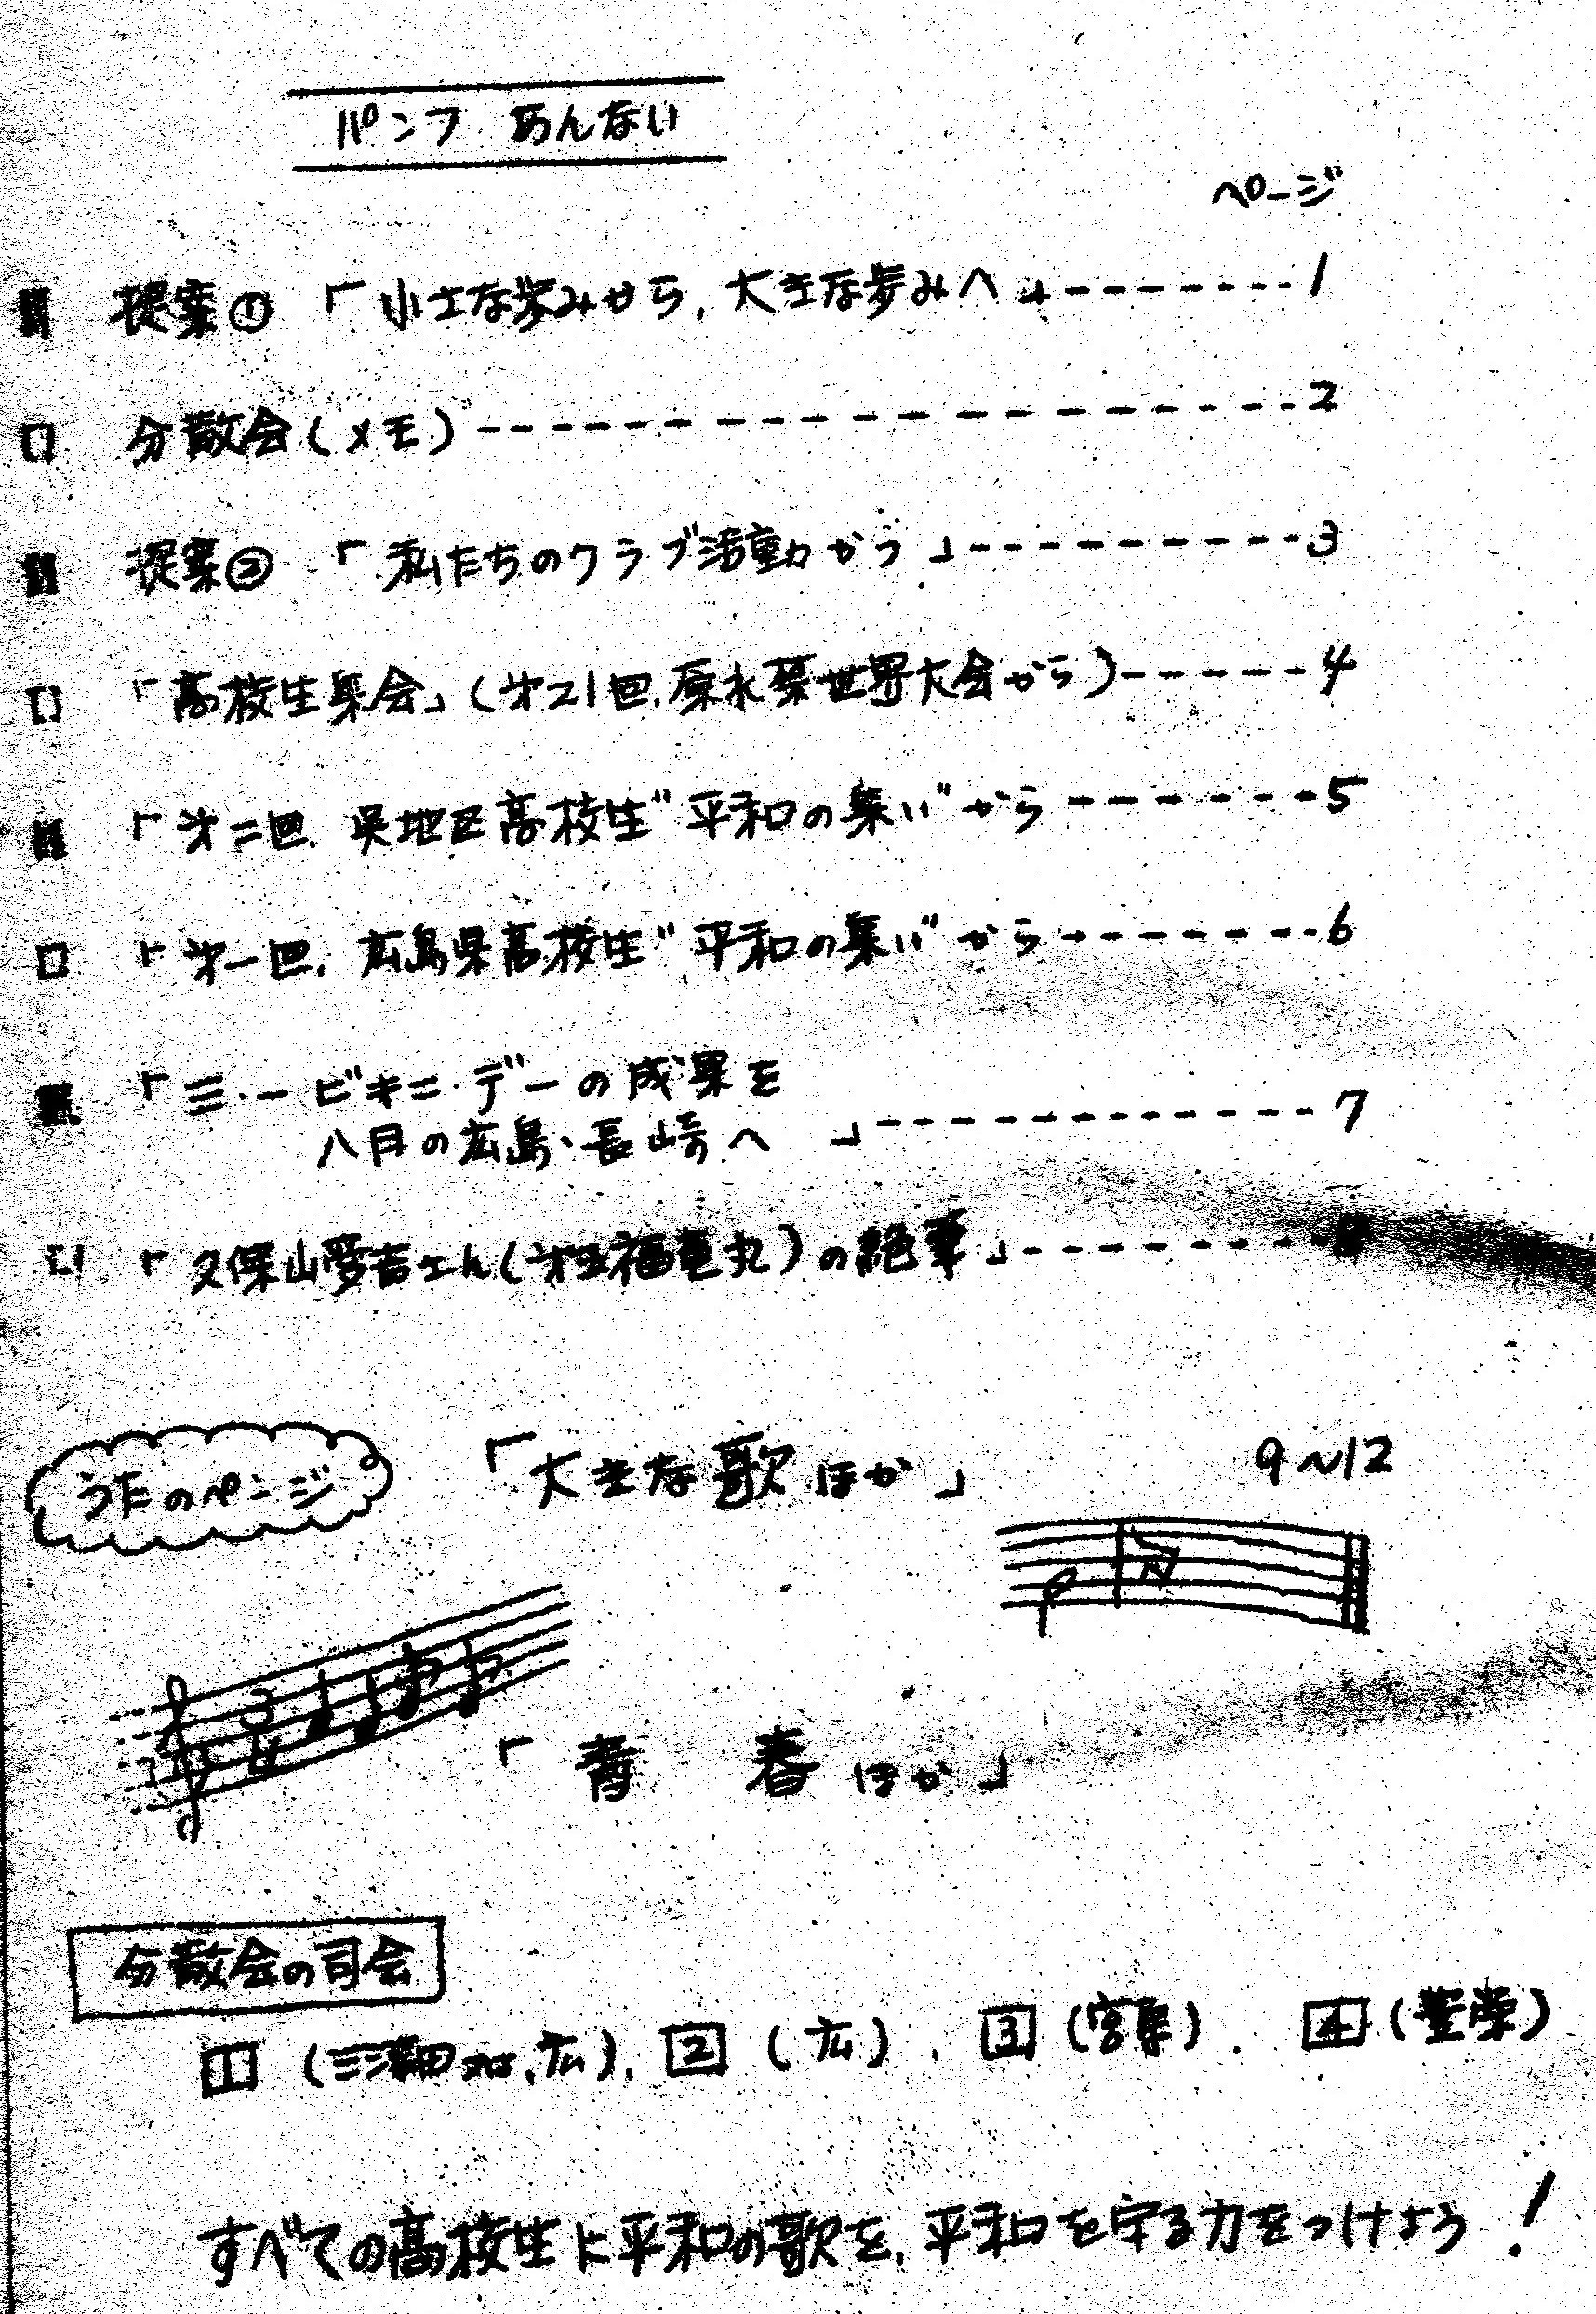 パンフ あんない
ページ
提案① 「小さな歩みから,大きな歩みへ」--------1
分散会(メモ)----------------2
提案② 「私たちのクラブ活動から」---------3
「高校生集会」(才21回.原水禁世界大会から)-----4
「才二回.呉地区高校生"平和の集い"から------5
「才一回.広島県高校生"平和の集い"から-------6
「三・一ビキニ・デーの成果を
八月の広島、長崎へ 」-----------7
「久保山愛吉さん(才五福竜丸)の絶筆」--------8
うたのページ 「大きな歌ほか」 9~12
「青 春ほか」
分散会の司会
1 (三津田,広). 2 (広). 3 (宮原). 4
すべての高校生に平和の歌を,平和を守る力をつけよう!